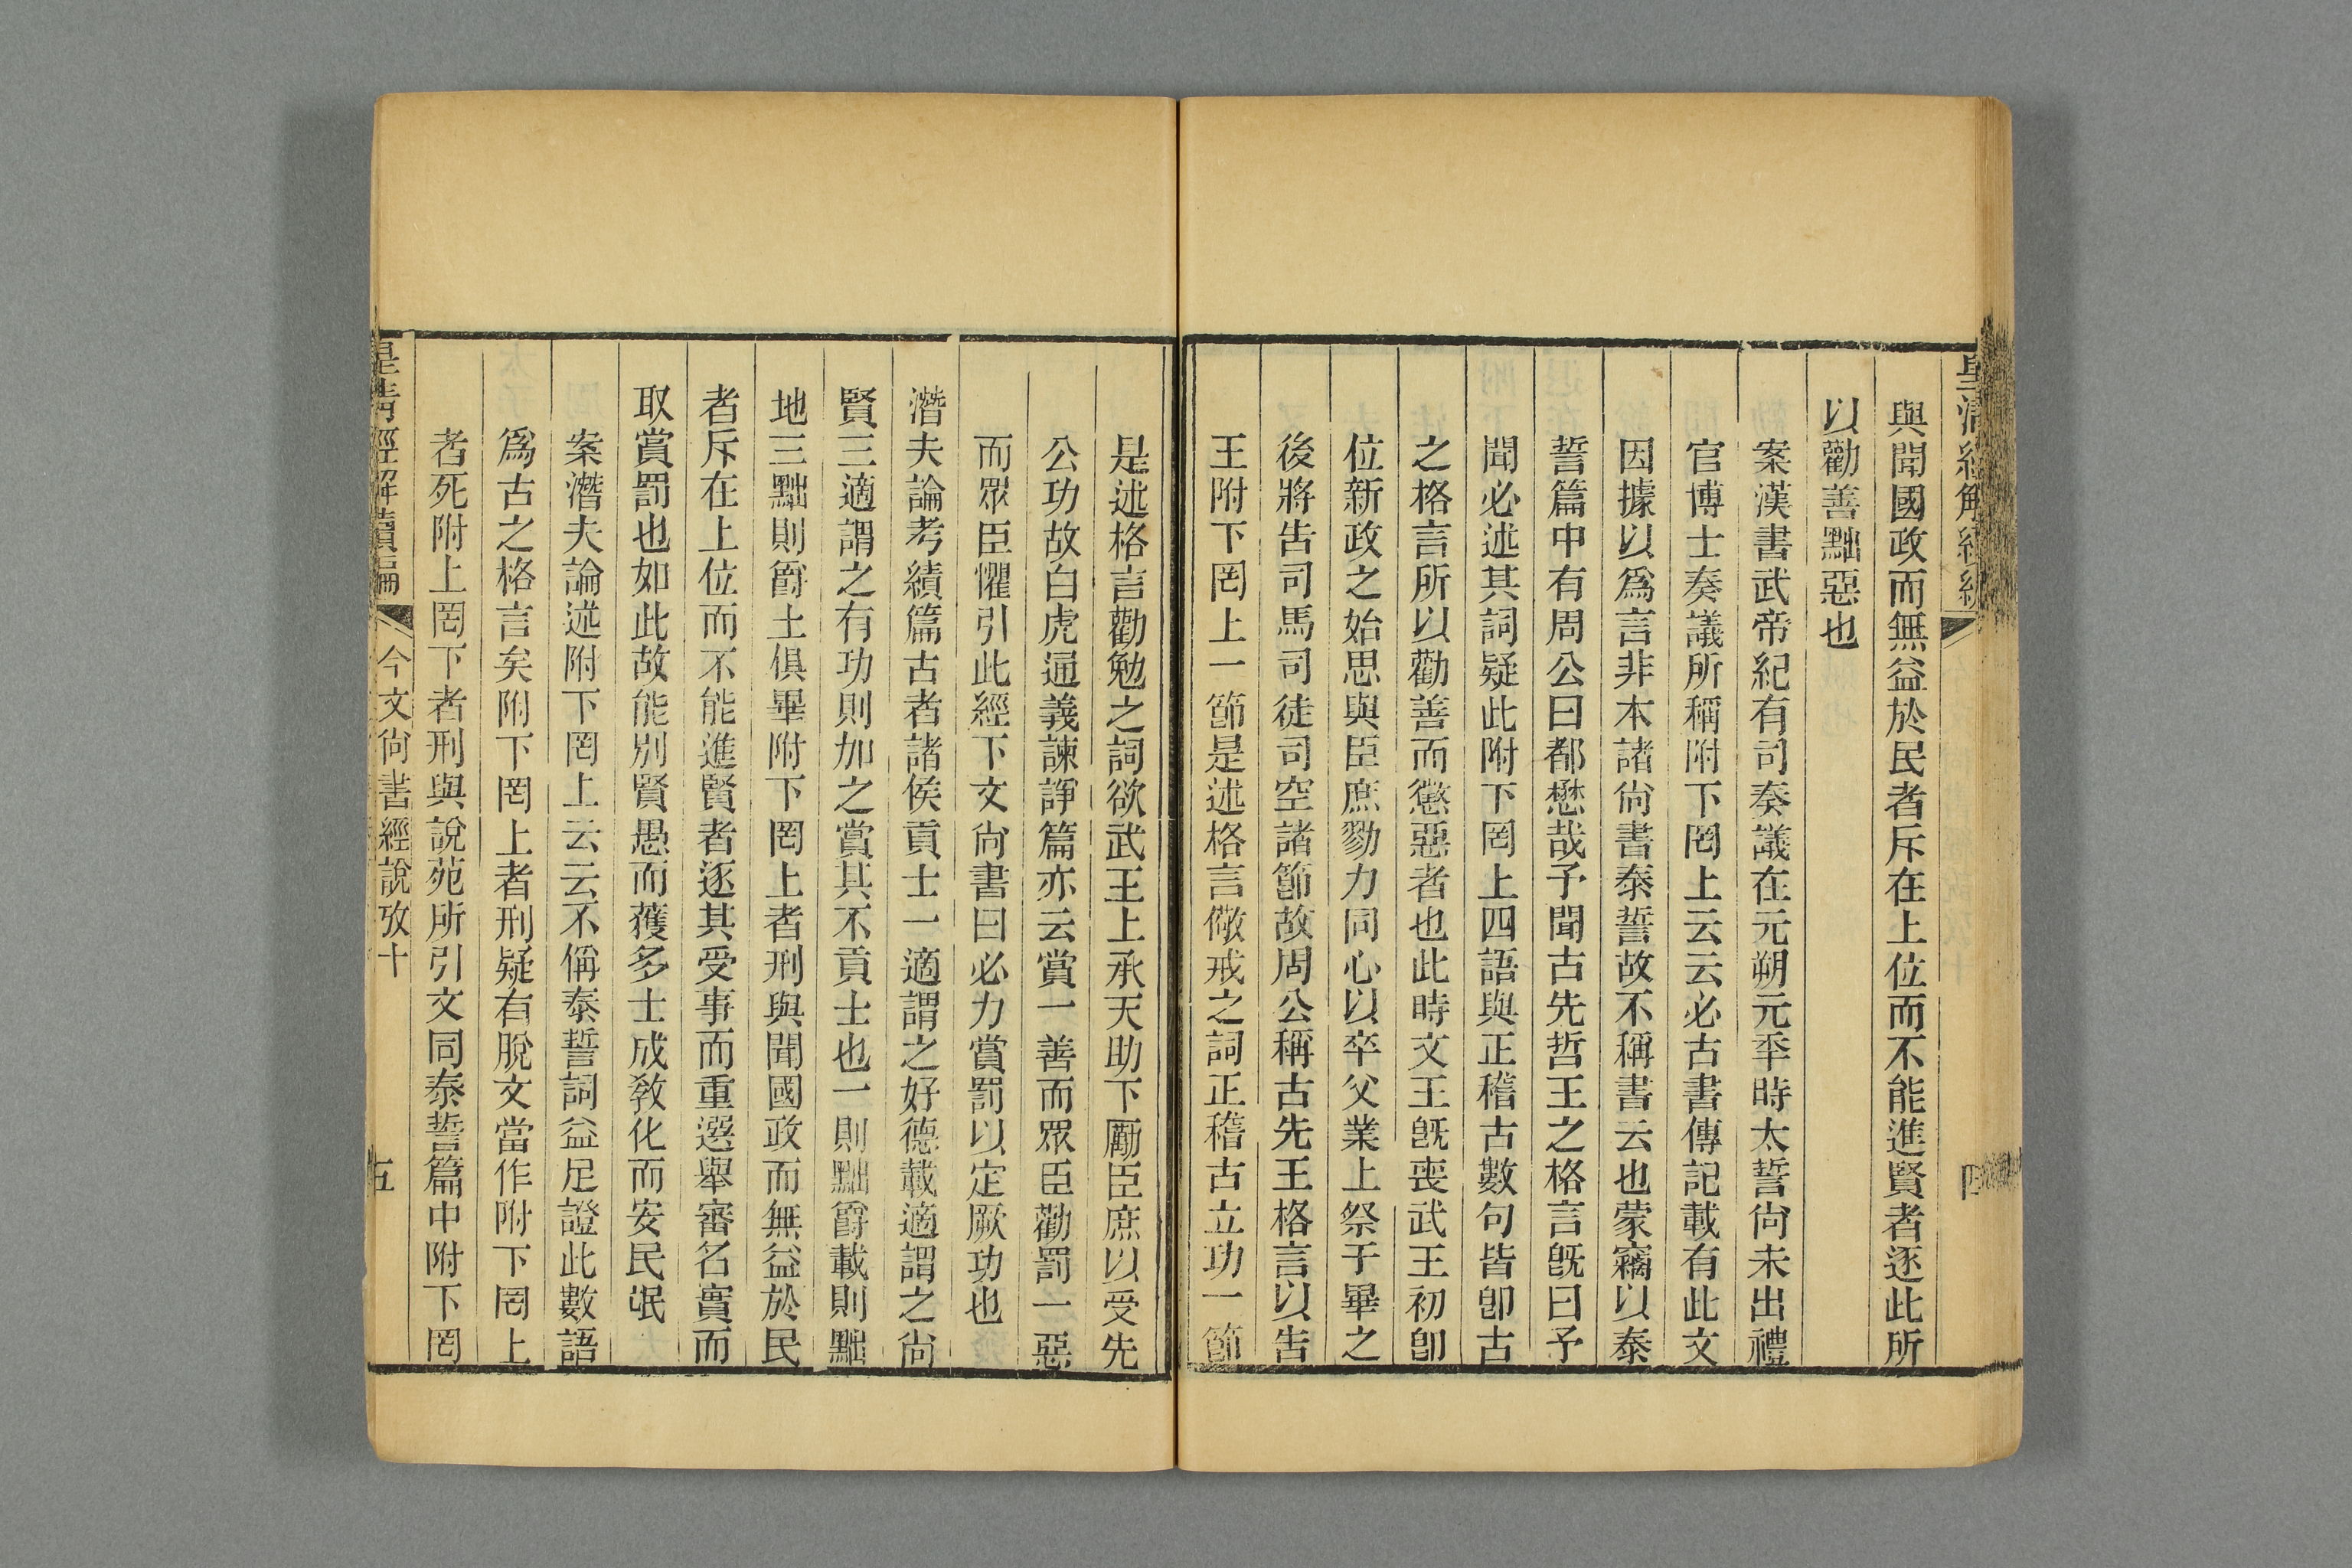 皇清經解續編
四
與聞國政而無益於民者斥在上位而不能進賢者逐此所
以勸善黜惡也
案漢書武帝紀有司奏議在元朔元年時太誓尙未出禮
官博士奏議所稱附下罔上云云必古書傳記載有此文
因據以爲言非本諸尙書泰誓故不稱書云也蒙竊以泰
誓篇中有周公曰都懋哉予聞古先哲王之格言旣曰予
聞必述其詞疑此附下罔上四語與正稽古數句皆卽古
之格言所以勸善而懲惡者也此時文王旣喪武王初卽
位新政之始思與臣庶勠力同心以卒父業上祭于畢之
後將告司馬司徒司空諸節故周公稱古先王格言以告
王附下罔上一節是述格言儆戒之詞正稽古立功一節
是述格言勸勉之詞欲武王上承天助下勵臣庶以受先
公功故白虎通義諫諍篇亦云賞一善而眾臣勸罰一惡
而眾臣懼引此經下文尙書曰必力賞罰以定厥功也
潛夫論考績篇古者諸侯貢士一適謂之好德載適謂之尙
賢三適謂之有功則加之賞其不貢士也一則黜爵載則黜
地三黜則爵土俱畢附下罔上者刑與聞國政而無益於民
者斥在上位而不能進賢者逐其受事而重選舉審名實而
取賞罰也如此故能別賢愚而獲多士成敎化而安民氓
案潛夫論述附下罔上云云不偁泰誓詞益足證此數語
爲古之格言矣附下罔上者刑疑有脫文當作附下罔上
者死附上罔下者刑與說苑所引文同泰誓篇中附下罔
皇清經解續編
今文尙書經說攷十
五